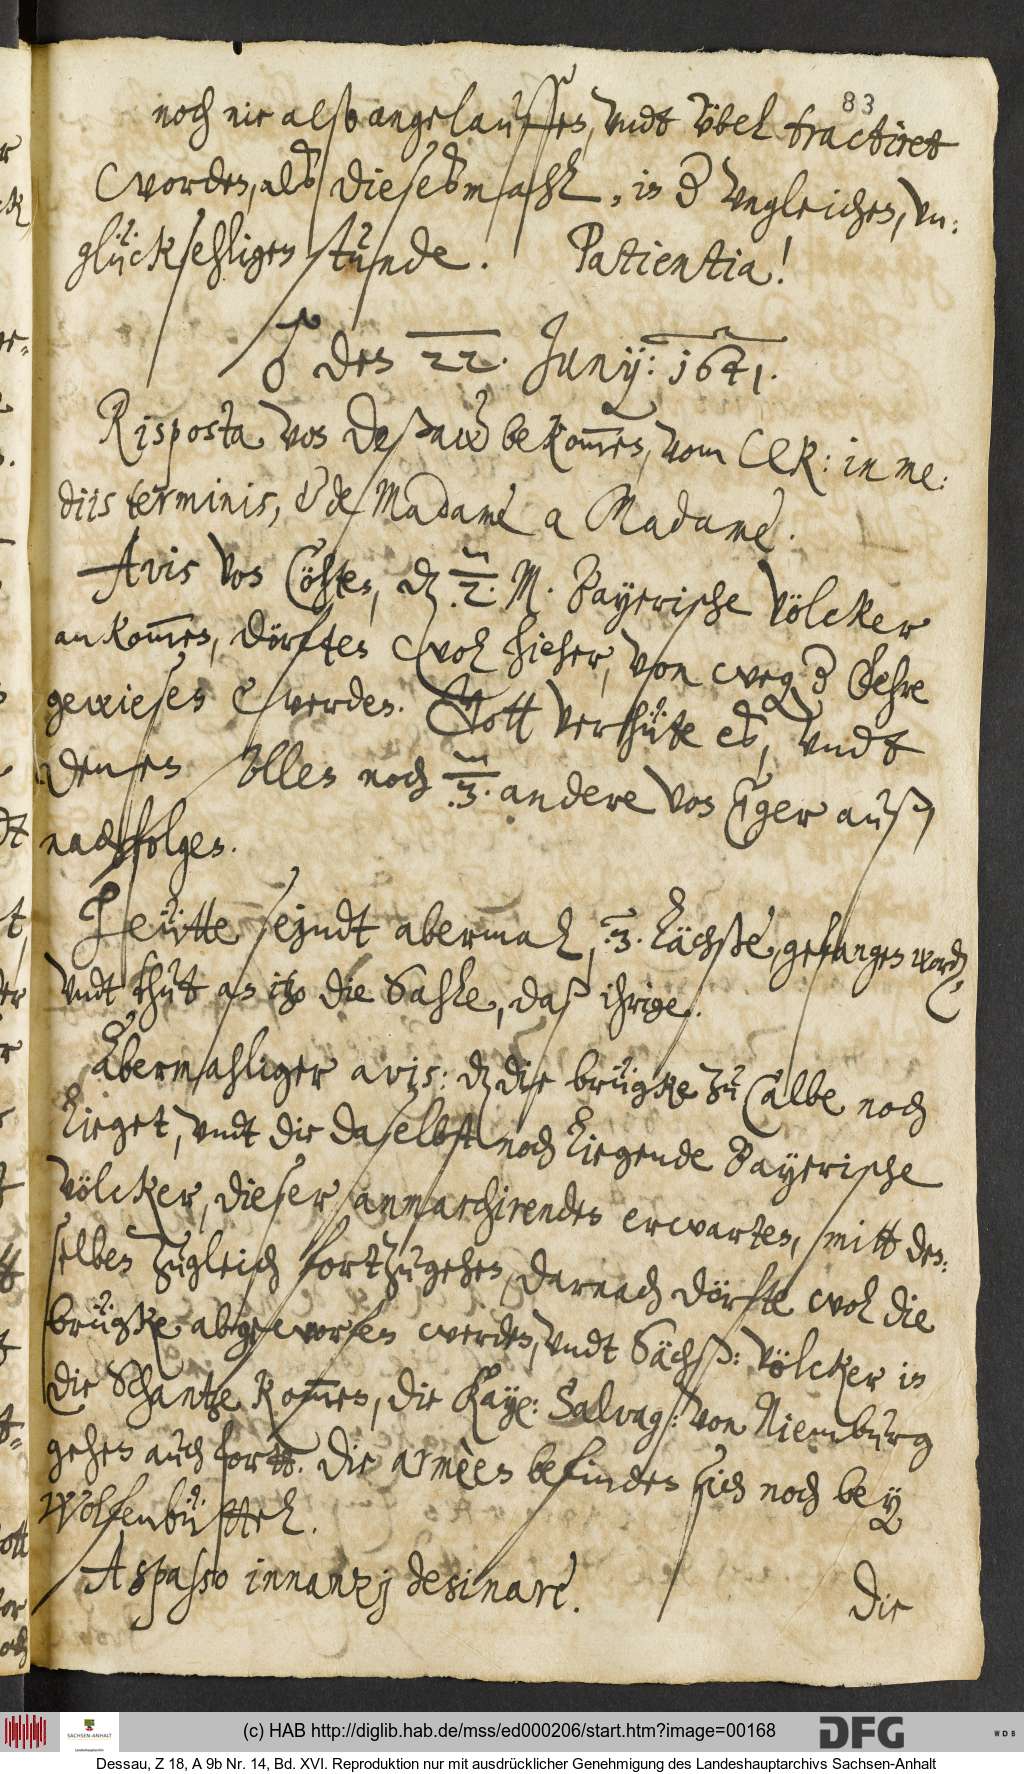 83
noch nie also angelauffen, undt übel tractiret
worden, alß dieses mahl, in der ungleichen, un:
glücksehligen stunde. Patientia!
♂ den 22. Junij: 1641.
Risposta von Deßaw bekommen, vom CCR: in me:
diis terminis, & de Madame a Madame.
Avis von Cöhten, daß 2. m. Bayerische völcker
ankommen, dörften wol hieher, von weg der Behre
gewiesen werden. Gott verhüte es, undt
denen sollen noch 3. andere von Eger auß,
nachfolgen.
Heütte seindt abermal, 3. Lächße, gefangen worden
undt thut an itzo die Sahle, daß ihrige.
Abermahliger avis: daß die brügke zu Calbe noch
lieget, undt die daselbst noch liegende Bayerische
völcker, dieser anmarchirenden erwarten, mitt den:
selben zugleich fortzugehen, darnach dörfte wol die
brügke abgeworfen werden, undt Sächß: völcker in
die Schantze kommen, die Kaye: Salvag: von Niemburg
gehen auch fortt. Die armèen befinden sich noch bey
Wolfenbüttel.
A spasso innanzj desinare.
Die
(c) HAB http://diglib.hab.de/mss/ed000206/start.htm?image=00168
SACHSEN-ANHALT
Landeshauptarchiv
DFG
WDB
Dessau, Z 18, A 9b Nr. 14, Bd. XVI. Reproduktion nur mit ausdrücklicher Genehmigung des Landeshauptarchivs Sachsen-Anhalt